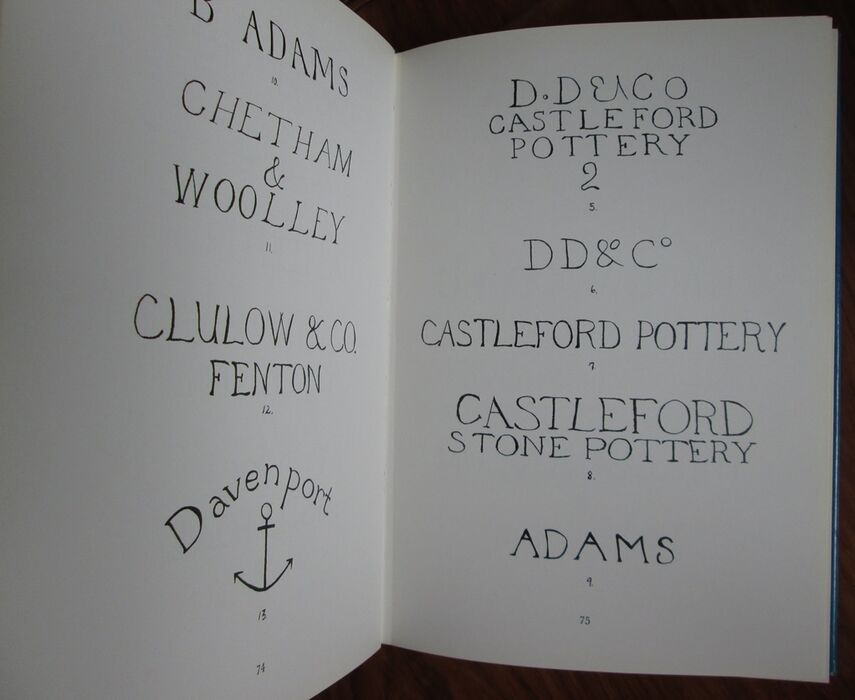 B ADAMS
10.
CHETHAM
&
WOOLLEY
11.
CLULOW & CO.
FENTON
12.
Davenport
13.
74
D.D & CO
CASTLEFORD
POTTERY
2
5.
DD & Cº
6.
CASTLEFORD POTTERY
7.
CASTLEFORD
STONE POTTERY
8.
ADAMS
9.
75